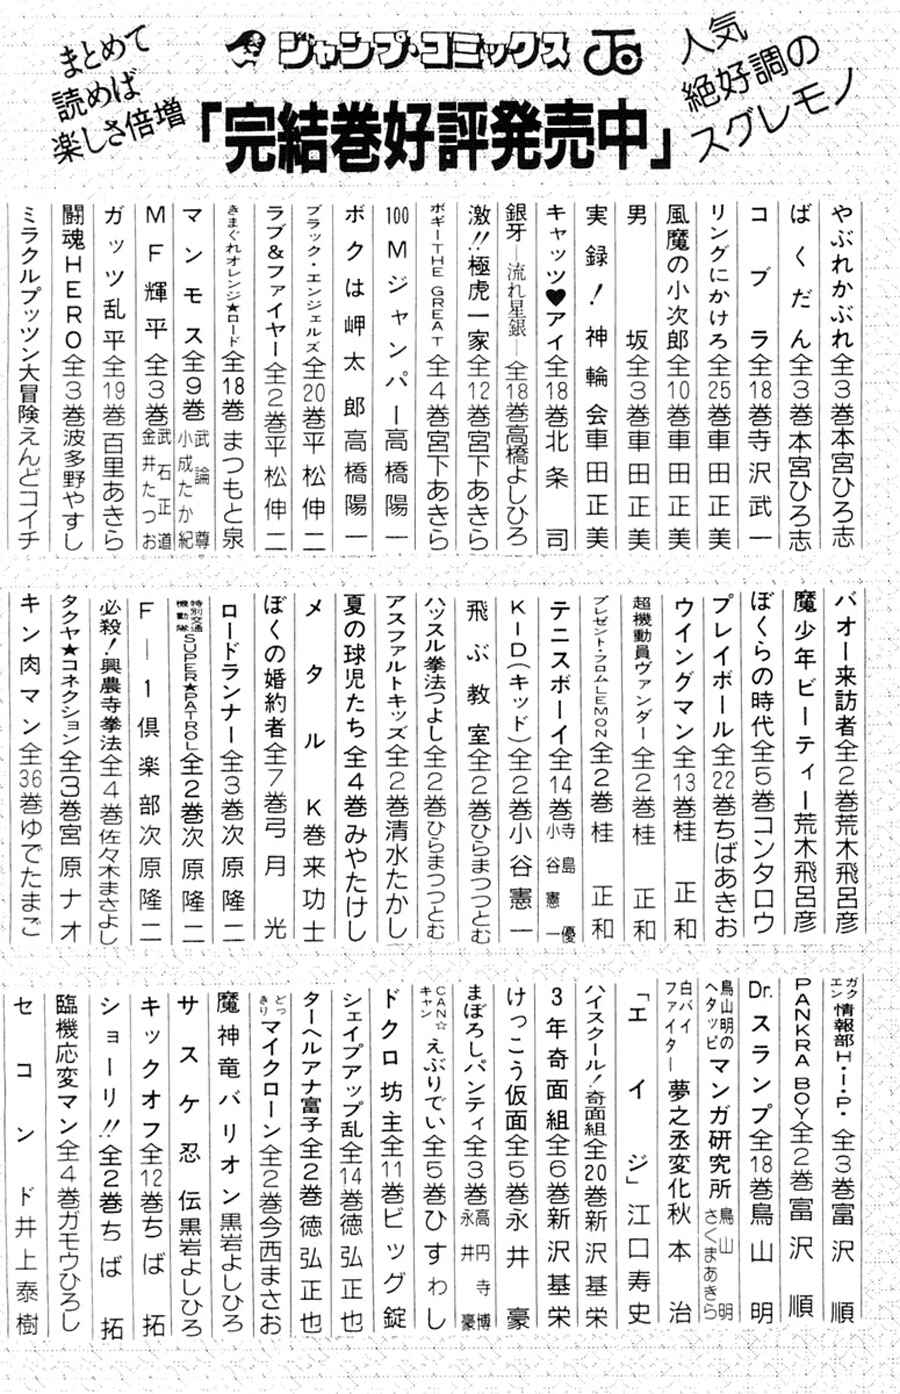 人気
絶好調の
スグレモノ
ジャンプ・コミックス
「完結巻好評発売中」
まとめて
読めば
楽しさ倍増
やぶれかぶれ全3巻本宮ひろ志
ばくだん全3巻本宮ひろ志
コブラ全18巻寺沢武一
リングにかけろ全25巻車田正美
風魔の小次郎全10巻車田正美
男坂全3巻車田正美
実録!神輪会車田正美
キャッツ♥アイ全18巻北条司
銀牙―流れ星銀―全18巻高橋よしひろ
激!!極虎一家全12巻宮下あきら
ボギーTHE GREAT全4巻宮下あきら
100Mジャンパー高橋陽一
ボクは岬太郎高橋陽一
ブラック・エンジェルズ全20巻平松伸二
ラブ&ファイヤー全2巻平松伸二
きまぐれオレンジ★ロード全18巻まつもと泉
マンモス全9巻武論尊 小成たか紀
MF輝平全3巻武石正道 金井たつお
ガッツ乱平全19巻百里あきら
闘魂HERO全3巻波多野やすし
ミラクルプッツン大冒険えんどコイチ
バオー来訪者全2巻荒木飛呂彦
魔少年ビーティー荒木飛呂彦
ぼくらの時代全5巻コンタロウ
プレイボール全22巻ちばあきお
ウイングマン全13巻桂正和
超機動員ヴァンダー全2巻桂正和
プレゼント・フロムLEMON全2巻桂正和
テニスボーイ全14巻寺島優 小谷憲一
KID(キッド)全2巻小谷憲一
飛ぶ教室全2巻ひらまつつとむ
ハッスル拳法つよし全2巻ひらまつつとむ
アスファルトキッズ全2巻清水たかし
夏の球児たち全4巻みやたけし
メタルK巻来功士
ぼくの婚約者全7巻弓月光
ロードランナー全3巻次原隆二
特別交通機動隊SUPER★PATROL全2巻次原隆二
F―1倶楽部次原隆二
必殺!興農寺拳法全4巻佐々木まさよし
タクヤ★コネクション全3巻宮原ナオ
キン肉マン全36巻ゆでたまご
ガクエン情報部H・I・P・全3巻富沢順
PANKRA BOY全2巻富沢順
Dr.スランプ全18巻鳥山明
鳥山明のヘタッピマンガ研究所鳥山明 さくまあきら
白バイファイター夢之丞変化秋本治
「エイジ」江口寿史
ハイスクール!奇面組全20巻新沢基栄
3年奇面組全6巻新沢基栄
けっこう仮面全5巻永井豪
まぼろしパンティ全3巻高円寺博 永井豪
CAN☆キャンえぶりでい全5巻ひすわし
ドクロ坊主全11巻ビッグ錠
シェイプアップ乱全14巻徳弘正也
ターヘルアナ富子全2巻徳弘正也
どっきりマイクローン全2巻今西まさお
魔神竜バリオン黒岩よしひろ
サスケ忍伝黒岩よしひろ
キックオフ全12巻ちば拓
ショーリ!!全2巻ちば拓
臨機応変マン全4巻ガモウひろし
セコンド井上泰樹